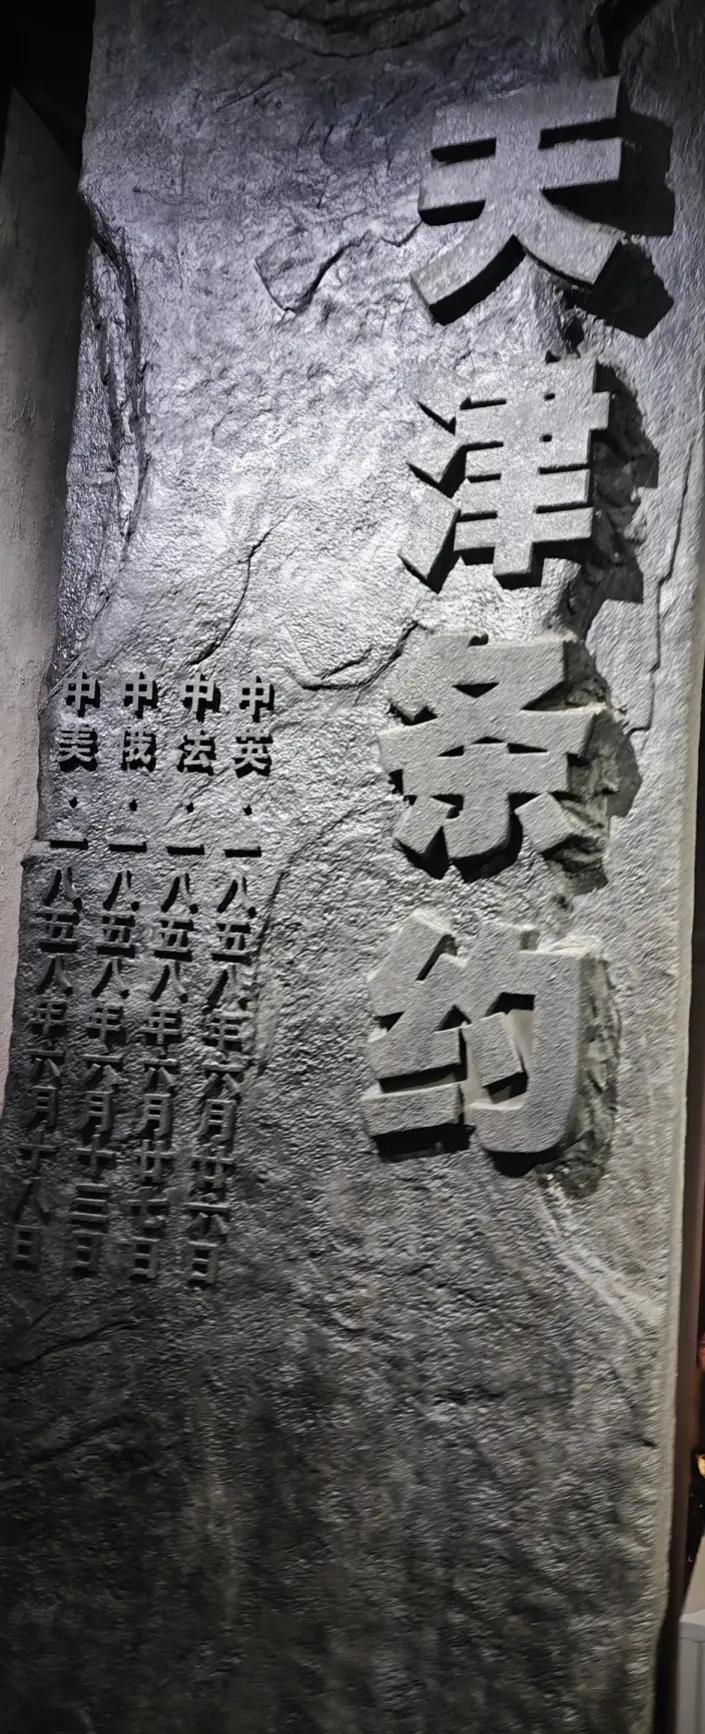 天津条约
中英·一八五八年六月廿六日
中法·一八五八年六月廿七日
中俄·一八五八年六月十三日
中美·一八五八年六月十八日